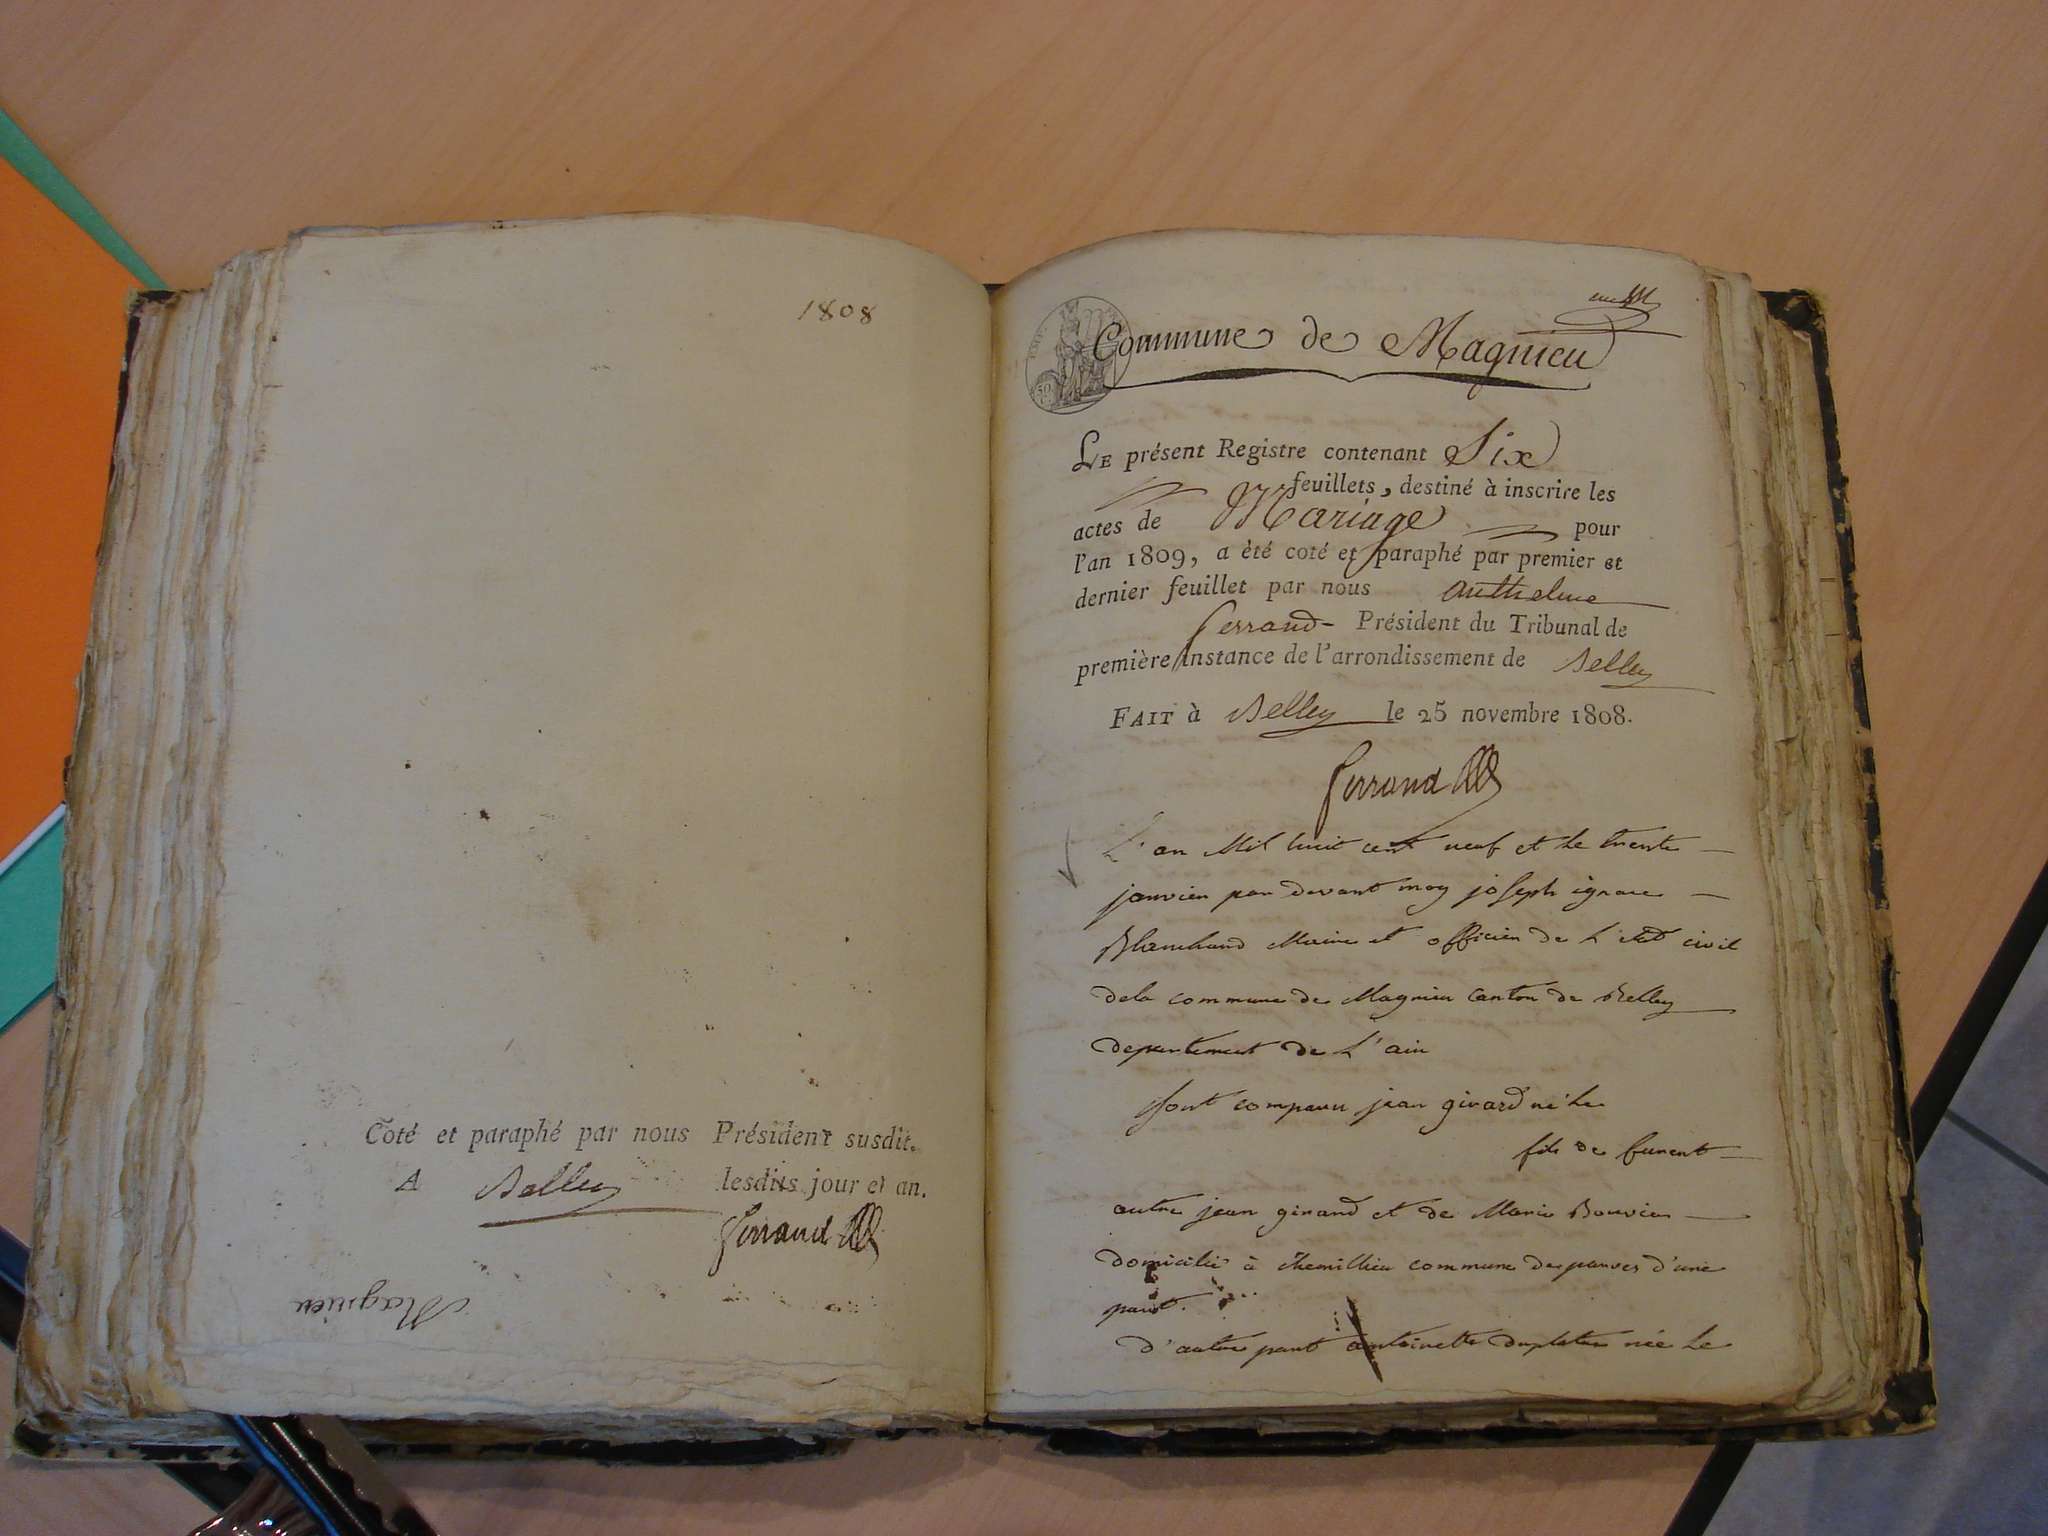 1808
Coté et paraphé par nous Président susdit.
A Belley lesdits jour et an.
Ferrand
Magnieu
Commune de Magnieu
LE présent Registre contenant Six
feuillets, destiné à inscrire les
actes de Mariage pour
l'an 1809, a èté coté et paraphé par premier et
dernier feuillet par nous Anthelme
ferrand - Président du Tribunal de
première instance de l'arrondissement de Belley
FAIT à Belley le 25 novembre 1808.
ferrand
L'an Mil huit cent neuf et le trente
janvier par devant moy joseph ignace
Blanchard Maire et officier de L'état civil
dela commune de Magnieu Canton de Belley
departement de L'ain
Sont comparu jean girard né Le
fils de
autre jean girard et de Marie Bouvier
domicilié à Chemillieu commune de parves d'une
part.
D'autre part antoinette née Le